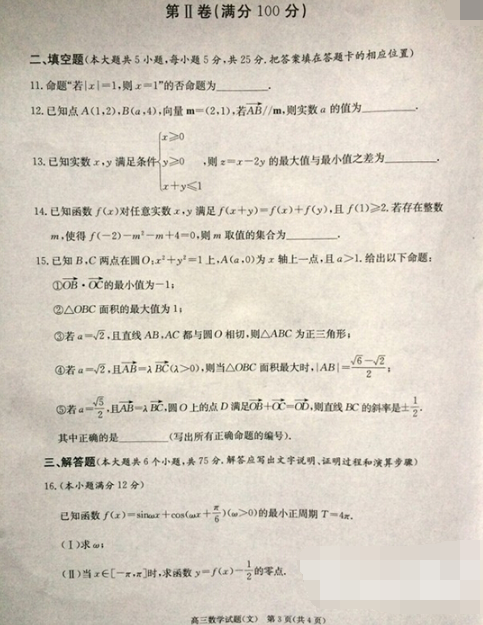 第Ⅱ卷(满分100分)
二、填空题(本大题共5小题,每小题5分,共25分.把答案填在答题卡的相应位置)
11.命题“若|x|=1,则x=1”的否命题为________.
12.已知点A(1,2),B(a,4),向量m=(2,1),若AB→//m,则实数a的值为________.
13.已知实数x,y满足条件{x≥0 y≥0 x+y≤1,则z=x-2y的最大值与最小值之差为________.
14.已知函数f(x)对任意实数x,y满足f(x+y)=f(x)+f(y),且f(1)≥2.若存在整数
m,使得f(-2)-m²-m+4=0,则m取值的集合为________.
15.已知B,C两点在圆O:x²+y²=1上,A(a,0)为x轴上一点,且a>1.给出以下命题:
①OB→·OC→的最小值为-1;
②△OBC面积的最大值为1;
③若a=√2,且直线AB,AC都与圆O相切,则△ABC为正三角形;
④若a=√2,且AB→=λBC→(λ>0),则当△OBC面积最大时,|AB|=(√6-√2)/2;
⑤若a=√5/2,且AB→=λBC→,圆O上的点D满足OB→+OC→=OD→,则直线BC的斜率是±1/2.
其中正确的是________(写出所有正确命题的编号).
三、解答题(本大题共6个小题,共75分.解答应写出文字说明、证明过程和演算步骤)
16.(本小题满分12分)
已知函数f(x)=sinωx+cos(ωx+π/6)(ω>0)的最小正周期T=4π.
(Ⅰ)求ω;
(Ⅱ)当x∈[-π,π]时,求函数y=f(x)-1/2的零点.
高三数学试题(文) 第3页(共4页)